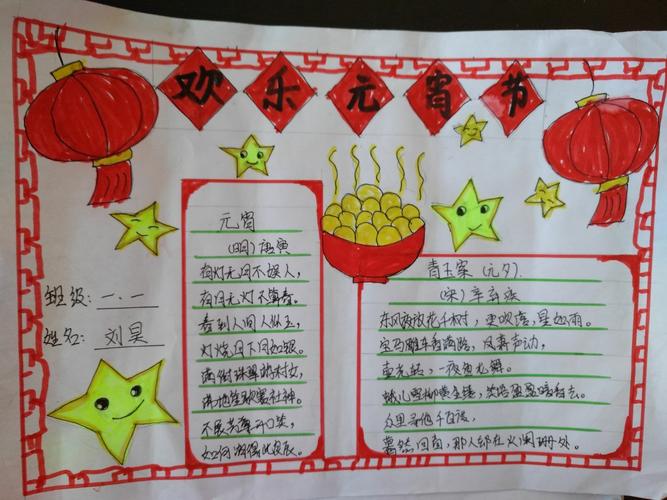 欢乐元宵节
班级：一.一
姓名：刘昊
元宵
(明)唐寅
有灯无月不娱人，
有月无灯不算春。
春到人间人似玉，
灯烧月下月如银。
满街珠翠游村女，
沸地笙歌赛社神。
不展芳尊开口笑，
如何消得此良辰。
青玉案（元夕）
(宋)辛弃疾
东风夜放花千树，更吹落，星如雨。
宝马雕车香满路，凤箫声动，
壶光转，一夜鱼龙舞。
蛾儿雪柳黄金缕，笑语盈盈暗香去。
众里寻他千百度，
蓦然回首，那人却在火阑珊处。